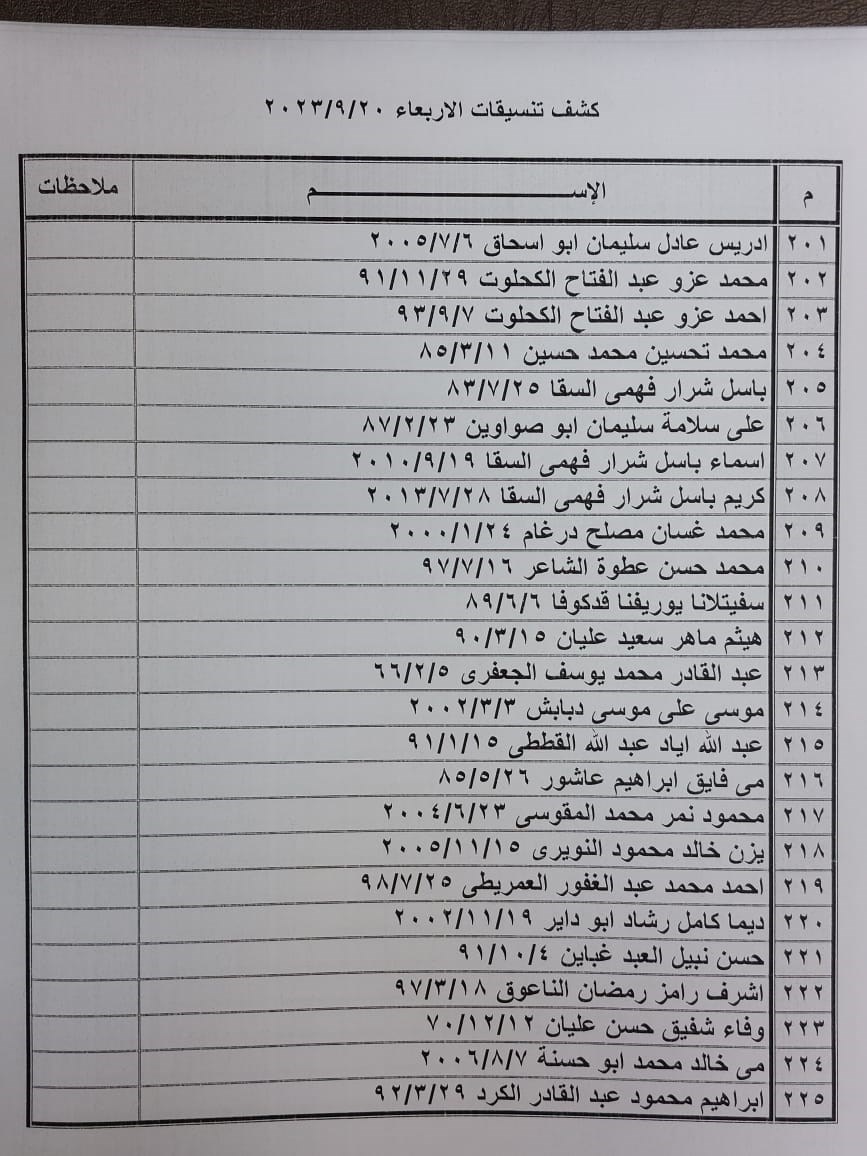 كشف تنسيقات الاربعاء ٢٠٢٣/٩/٢٠
م الإســـــم ملاحظات
٢٠١ ادريس عادل سليمان ابو اسحاق ٢٠٠٥/٧/٦
٢٠٢ محمد عزو عبد الفتاح الكحلوت ٩١/١١/٢٩
٢٠٣ احمد عزو عبد الفتاح الكحلوت ٩٣/٩/٧
٢٠٤ محمد تحسين محمد حسين ٨٥/٣/١١
٢٠٥ باسل شرار فهمى السقا ٨٣/٧/٢٥
٢٠٦ على سلامة سليمان ابو صواوين ٨٧/٢/٢٣
٢٠٧ اسماء باسل شرار فهمى السقا ٢٠١٠/٩/١٩
٢٠٨ كريم باسل شرار فهمى السقا ٢٠١٣/٧/٢٨
٢٠٩ محمد غسان مصلح درغام ٢٠٠٠/١/٢٤
٢١٠ محمد حسن عطوة الشاعر ٩٧/٧/١٦
٢١١ سفيتلانا يوريفنا قدكوفا ٨٩/٦/٦
٢١٢ هيثم ماهر سعيد عليان ٩٠/٣/١٥
٢١٣ عبد القادر محمد يوسف الجعفرى ٦٦/٢/٥
٢١٤ موسى على موسى دبابش ٢٠٠٢/٣/٣
٢١٥ عبد الله اياد عبد الله القططى ٩١/١/١٥
٢١٦ مى فايق ابراهيم عاشور ٨٥/٥/٢٦
٢١٧ محمود نمر محمد المقوسى ٢٠٠٤/٦/٢٣
٢١٨ يزن خالد محمود النويرى ٢٠٠٥/١١/١٥
٢١٩ احمد محمد عبد الغفور العمريطى ٩٨/٧/٢٥
٢٢٠ ديما كامل رشاد ابو داير ٢٠٠٢/١١/١٩
٢٢١ حسن نبيل العبد غباين ٩١/١٠/٤
٢٢٢ اشرف رامز رمضان الناعوق ٩٧/٣/١٨
٢٢٣ وفاء شفيق حسن عليان ٧٠/١٢/١٢
٢٢٤ مى خالد محمد ابو حسنة ٢٠٠٦/٨/٧
٢٢٥ ابراهيم محمود عبد القادر الكرد ٩٢/٣/٢٩